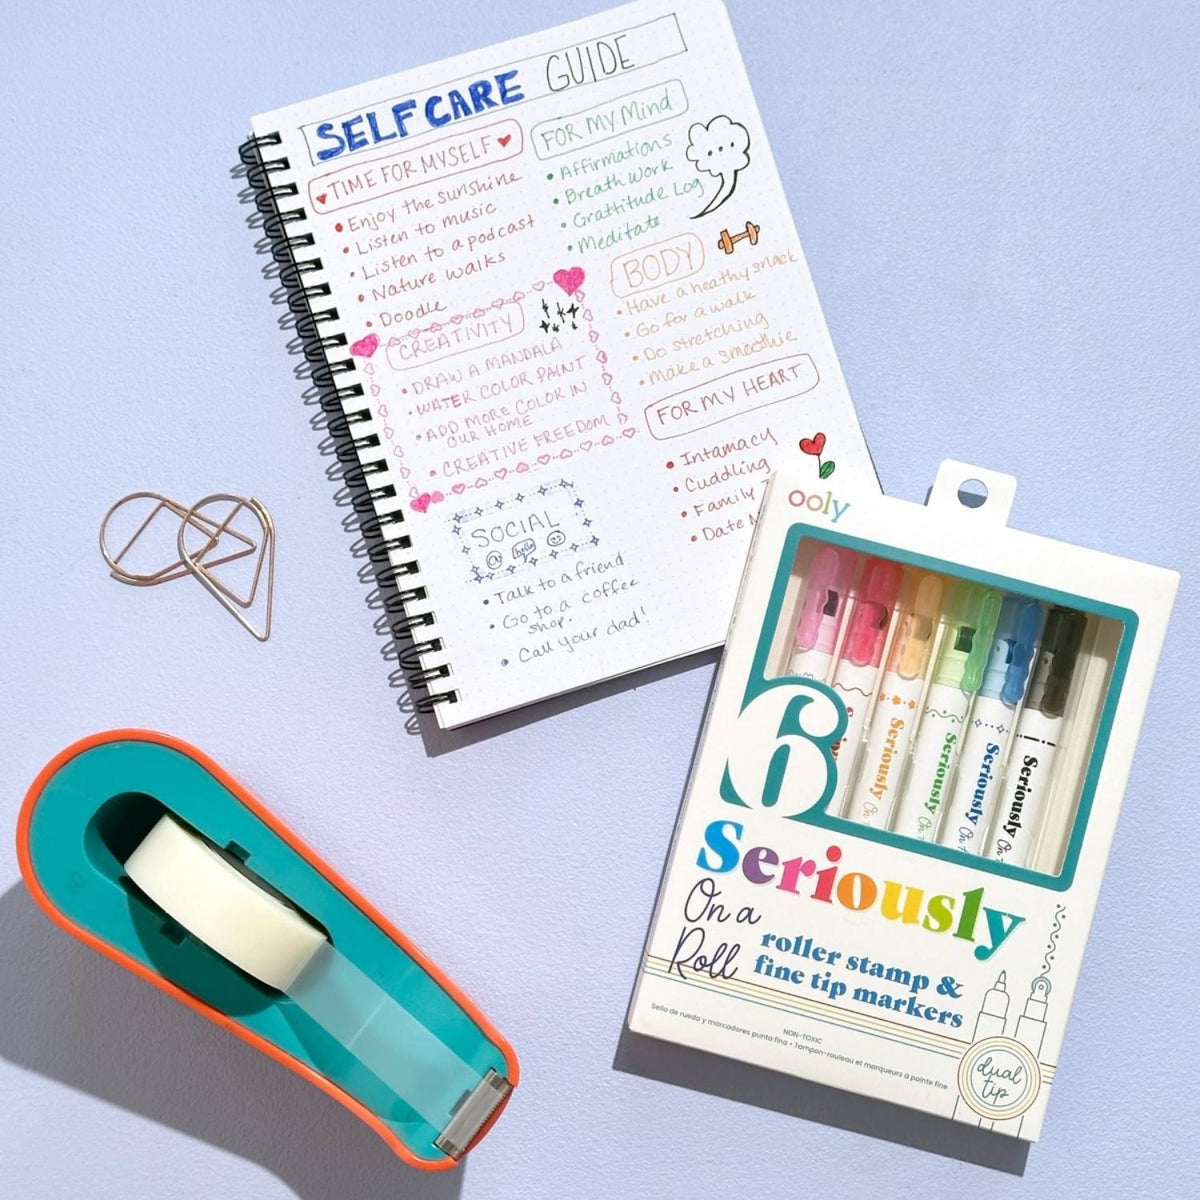 SELFCARE GUIDE
TIME FOR MYSELF
Enjoy the sunshine
Listen to music
Listen to a podcast
Nature walks
Doodle
FOR MY Mind
Affirmations
Breath Work
Grattitude Log
Meditate
BODY
Have a heathy snack
Go for a walk
Do stretching
Make a smoothie
CREATIVITY
DRAW A MANDALA
WATER COLOR PAINT
ADD MORE COLOR IN
OUR HOME
CREATIVE FREEDOM
FOR MY HEART
Intamacy
Cuddling
Family
Date
SOCIAL
@ hello
Talk to a friend
Go to a coffee
shop.
Call your dad!
ooly
Seriously
Seriously On
Seriously On
Seriously On
6
Seriously
On a
Roll
roller stamp &
fine tip markers
NON-TOXIC
Sello de rueda y marcadores punta fina • Tampon-rouleau et marqueurs à pointe fine
dual
tip